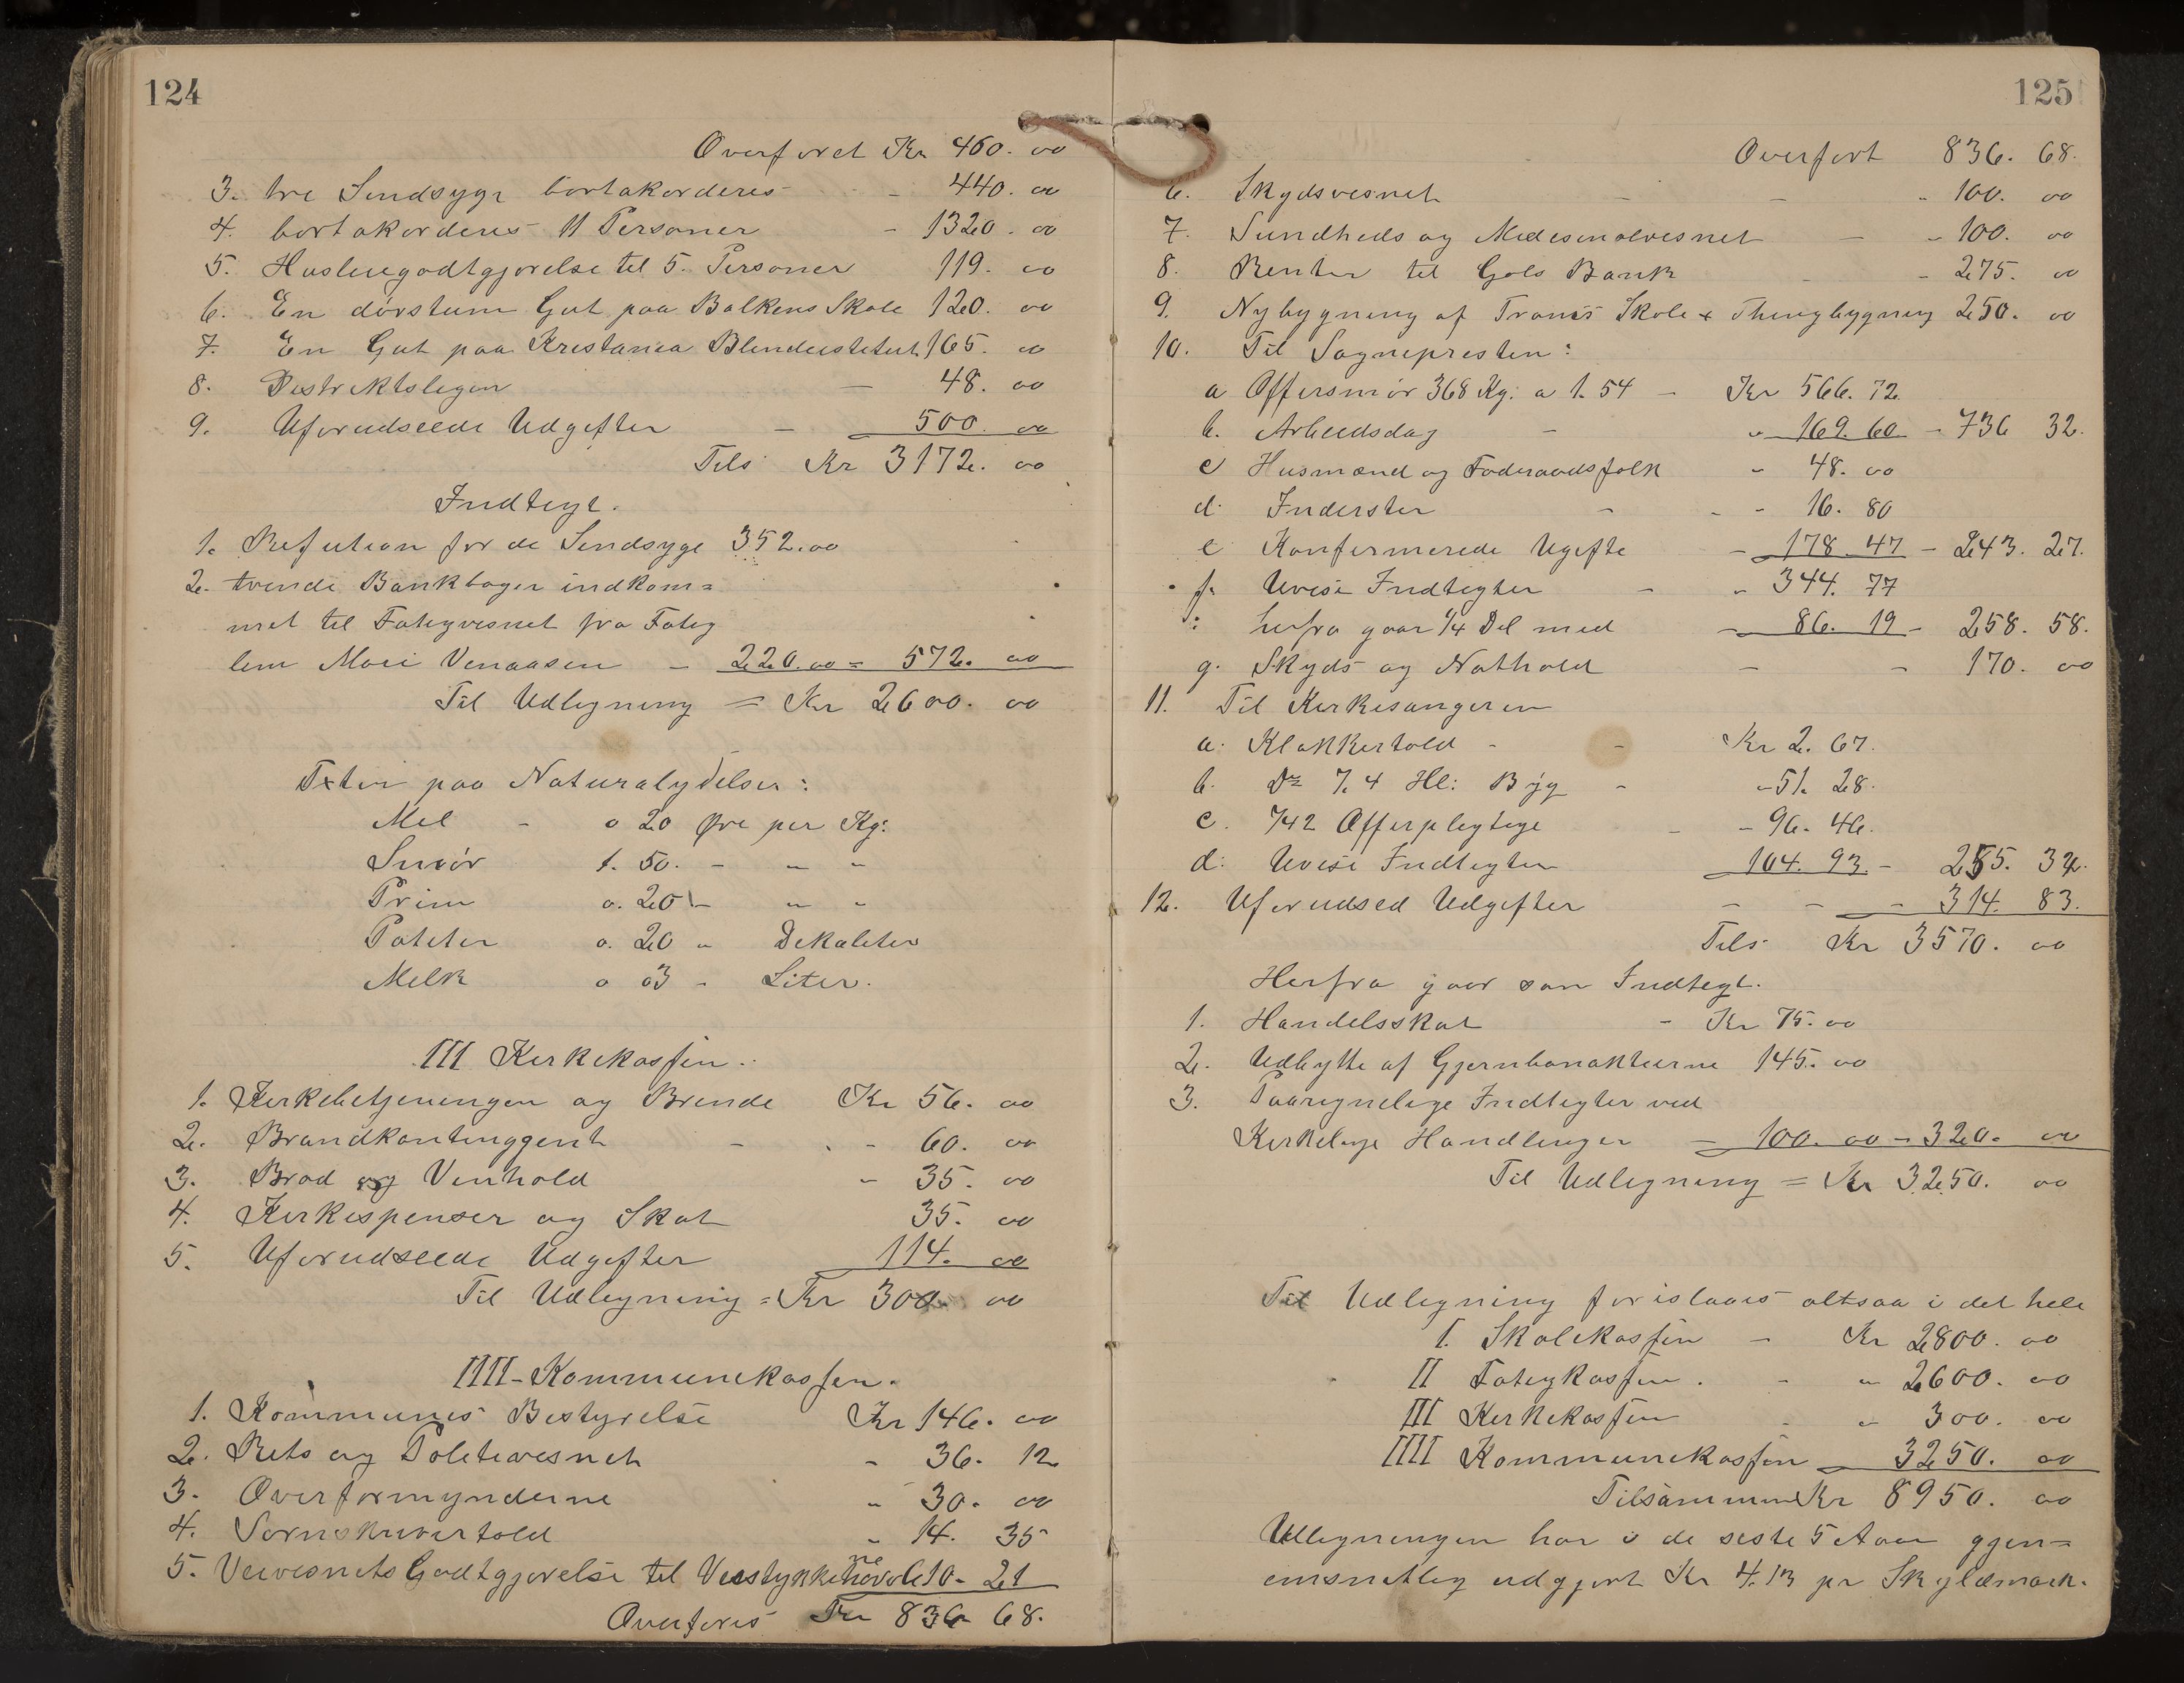 124
Overføret Kr 460. 00
3. tre Sindsyge bortakorderes - 440. 00
4. bortakorderes 11 Personer - 1320. 00
5. Husleiegodtgjørelse til 5. Personer 119. 00
6. En døvstum Gut paa Balkens Skole 120. 00
7. En Gut paa Kristania Blindeistitut 165. 00
8. Distriktslegen — 48. 00
9. Uforudseede Udgifter — 500. 00
Tils Kr 3172. 00
Indtegt.
1. Refution for de Sindsyge 352.00
2. tvende Bankbøger indkom=
met til Fatigvesnet fra Fatig
lem Mari Venaasen - 220.00 = 572. 00
Til Udligning = Kr 2600. 00
Naturalydelser:
paa
Mel - a 20 Øre per Kg:
Smør 1. 50. - " "
Prim a. 20 - " "
Poteter a. 20 " Dekaliter
Melk a 03 - Liter.
III Kirkekassen.
1. Kirkebetjeningen og Brende Kr 56. 00
2. Brandkontinggent - - 60. 00
3. Brød og Vinhold - 35. 00
4. Kirkespenser og Skat 35. 00
5. Uforudseede Udgifter 114. 00
Til Udligning = Kr 300. 00
IIII - Kommunekassen.
1. Kommunes Bestyrelse Kr 146. 00
2. Rets og Politivesnet - 36. 12
3. Overformynderne " 30. 00
4. Sornskrivertold " 14. 35
5. Veivesnets Godtgjørelse til Veistykke 610. 21
Overføres Kr 836 68.
125
Overført 836. 68.
6. Skydsvesnet - - " 100. 00
7. Sundheds og Medesinalvesnet — " 100. 00
8. Renter til Gols Bank - - 275. 00
9. Nybygning af Skole + Thingbygning 250. 00
10. Til Sognepresten:
a Offersmør 368 Kg: a 1.54 - Kr 566. 72.
b. Arbeidsdag - " 169. 60 - 736 32.
c Husmænd og Føderaadsfolk - 48. 00
d. Inderster - - - 16. 80
e Konfirmerede Ugifte - 178. 47 - 243. 27.
f. Uvisse Indtegter - " 344. 77
herfra gaar 1/4 Del med - 86. 19 - 258. 58.
g. Skyds og Nathold - - 170. 00
11. Til Kirkesangeren
a. Klokkertold - - Kr 2. 67.
b. Do 7.4 Hl: Byg - - 51. 28.
c. 742 Offerpligtige - - 96. 46.
d. Uvisse Indtegter 104. 93. - 255. 34.
12. Uforudsed Udgifter - - - 314. 83.
Tils Kr 3570. 00
Herfra gaar som Indtegt.
1. Handelsskat - Kr 75. 00
2. Udbytte af Gjernbanaktierne 145. 00
3. Paaregnelige Indtegter ved
Kirkelige Handlinger = 100. 00 - 320. 00
Til Udligning = Kr 3250. 00
Til Udligning forislaaes altsaa i det hele
I. Skolekassen - Kr 2800. 00
II Fatigkassen. - " 2600. 00
III Kirkekassen - " 300. 00
IIII Kommunekassen 3250. 00
Tilsammen Kr 8950. 00
Udligningen har i de siste 5 Aar gjen=
emsnitlig udgjort Kr 4.13 pr Skyldmark.